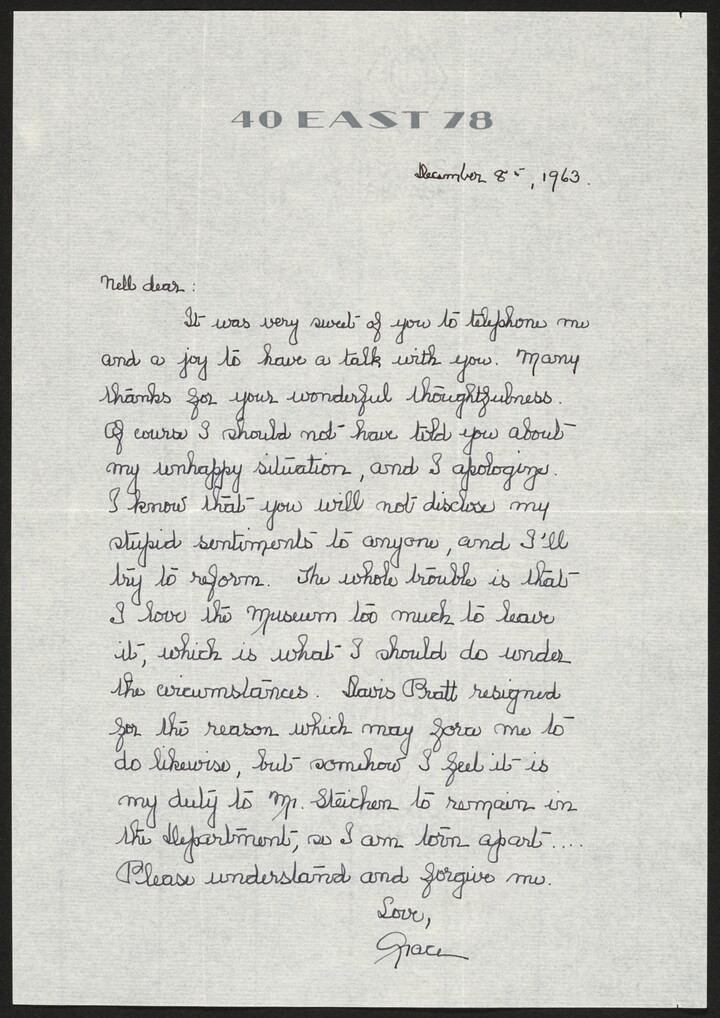 40 EAST 78
December 8th, 1963.
Nell dear:
It was very sweet of you to telephone me
and a joy to have a talk with you. Many
thanks for your wonderful thoughtfulness.
Of course I should not have told you about
my unhappy situation, and I apologize.
I know that you will not disclose my
stupid sentiments to anyone, and I'll
try to reform. The whole trouble is that
I love the Museum too much to leave
it, which is what I should do under
the circumstances. Davis Pratt resigned
for the reason which may force me to
do likewise, but somehow I feel it is
my duty to Mr. Steichen to remain in
the Department, so I am torn apart....
Please understand and forgive me.
Love,
Grace